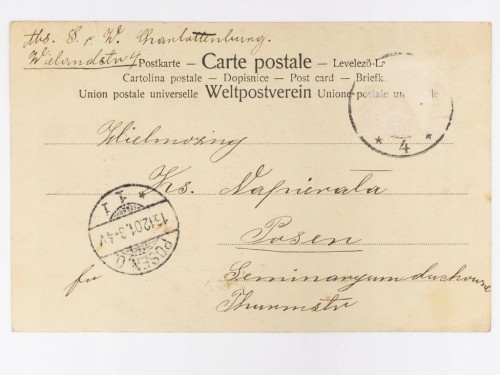 Abs. S. v. W. Charlottenburg.
Wielandstr. 4
Postkarte – Carte postale – Levelező-L
Cartolina postale – Dopisnice – Post card – Briefk
Union postale universelle Weltpostverein Union postale un elle
* 4 *
Wielmożny
Ks. Napierała
Posen
Seminaryum duchowne
Thurmstr
* 1 I
13.12.01. 3-4V
POSEN O.